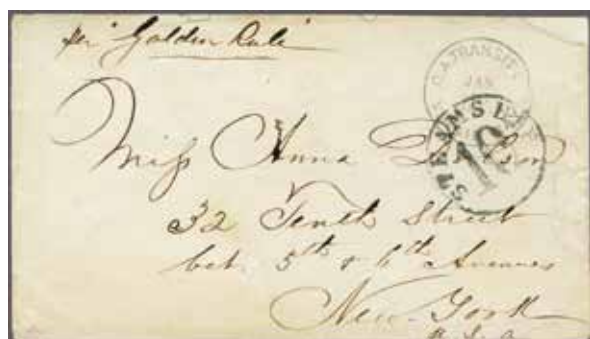 per "Golden Rule"
C. A. TRANSIT
JAN
STEAMSHIP
10
Miss Anna
32 Tenth Street
bet. 5th & 6th Avenues
New York
U.S.A.